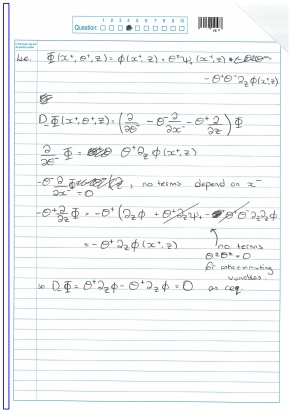 Question:
1 2 3 4 5 6 7 8 9 10
i.e. Φ(x⁺, θ⁺, z) = φ(x⁺, z) + θ⁺ψ₊(x⁺, z)
- θ⁺θ⁻∂_z φ(x⁺, z)
D₋Φ(x⁺, θ⁺, z) = (∂/∂θ⁻ - θ⁻ ∂/∂x⁻ - θ⁺ ∂/∂z) Φ
∂/∂θ⁻ Φ = θ⁺∂_z φ(x⁺, z)
-θ⁻ ∂/∂x⁻ = 0, no terms depend on x⁻
-θ⁺ ∂/∂z Φ = -θ⁺(∂_z φ + θ⁺∂_z ψ₊ - θ⁺θ⁻∂_z∂_z φ
= -θ⁺∂_z φ(x⁺, z)
no terms
θ⁺θ⁺ = 0
for anticommuting
variables.
so D₋Φ = θ⁺∂_z φ - θ⁺∂_z φ = 0 as req.